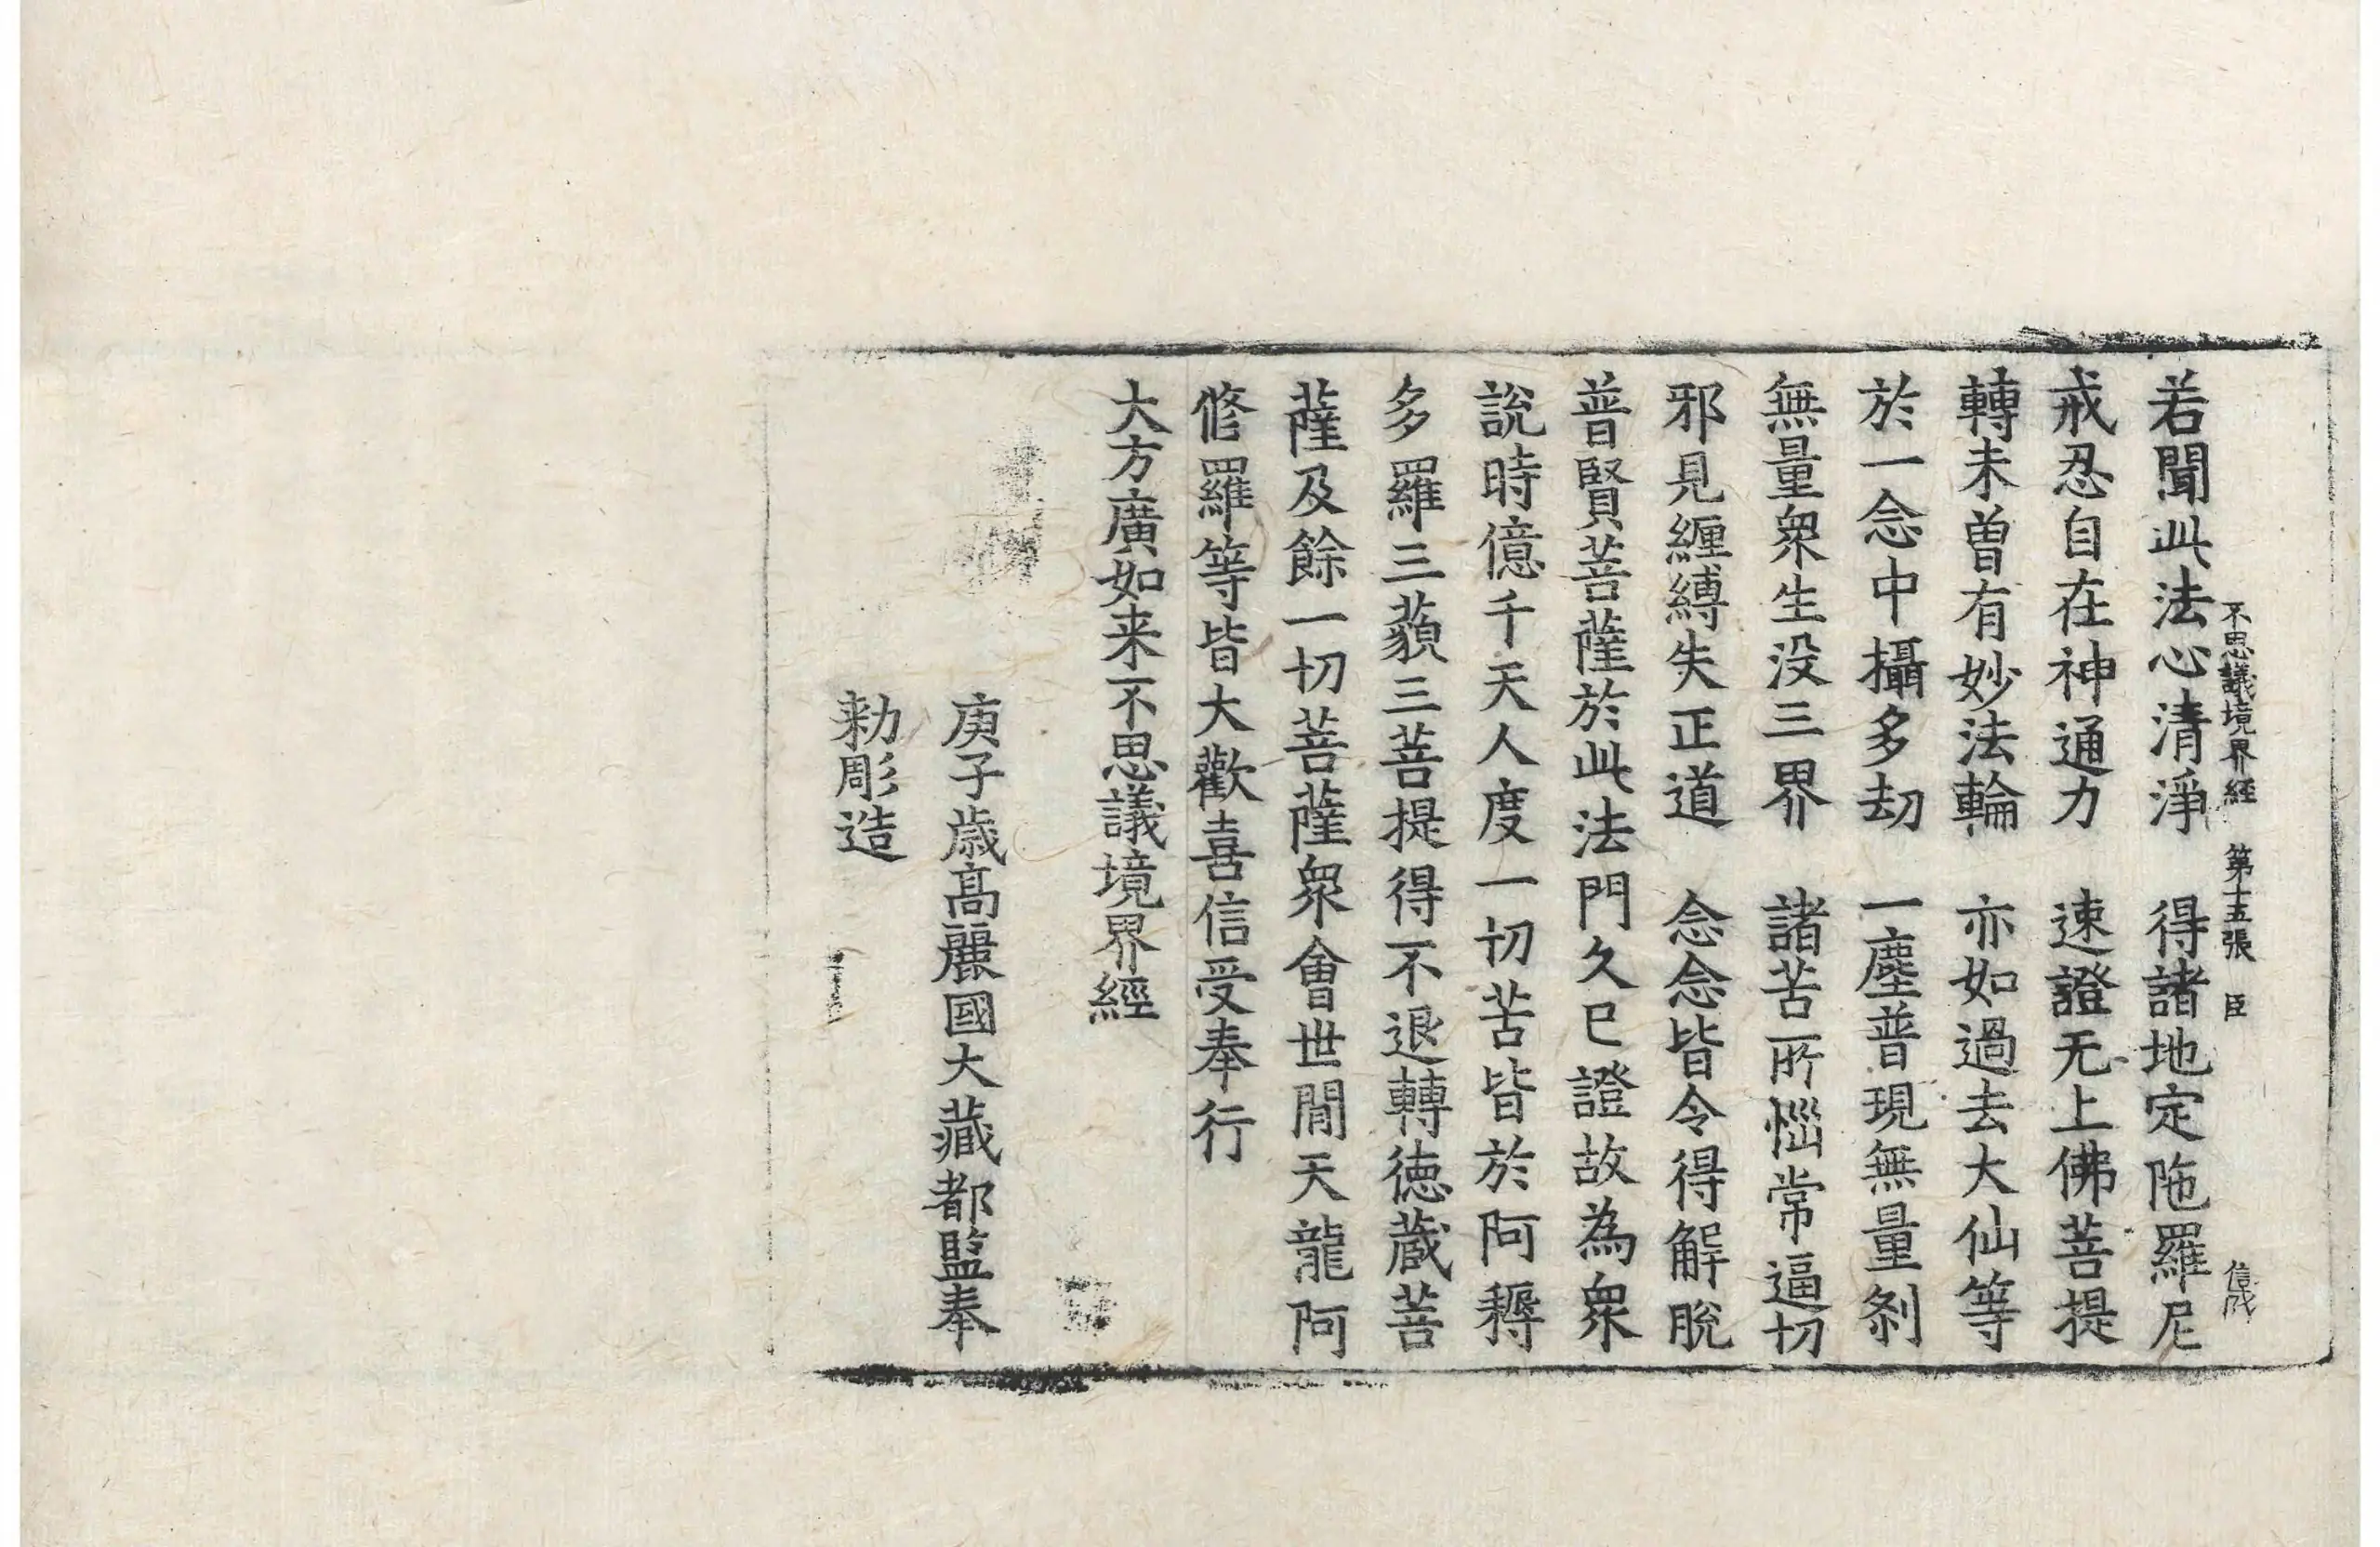 不思議境界經 第十五張 臣
若聞此法心清淨 得諸地定陁羅尼
戒忍自在神通力 速證无上佛菩提
轉未曾有妙法輪 亦如過去大仙等
於一念中攝多劫 一塵普現無量刹
無量衆生没三界 諸苦所惱常逼切
邪見纒縛失正道 念念皆令得解脫
普賢菩薩於此法門久已證故為衆
說時億千天人度一切苦皆於阿耨
多羅三藐三菩提得不退轉徳蔵菩
薩及餘一切菩薩衆會世閒天龍阿
修羅等皆大歡喜信受奉行
大方廣如来不思議境界經
庚子歳髙麗國大藏都監奉
勑彫造